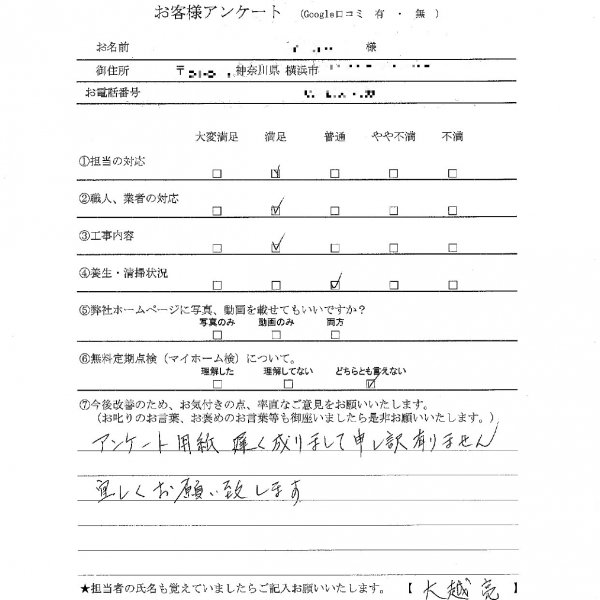 お客様アンケート （Google口コミ 有 ・ 無 ）
お名前 様
御住所 〒 神奈川県 横浜市
お電話番号
大変満足 満足 普通 やや不満 不満
①担当の対応 □ ☑ □ □ □
②職人、業者の対応 □ ☑ □ □ □
③工事内容 □ ☑ □ □ □
④養生・清掃状況 □ □ ☑ □ □
⑤弊社ホームページに写真、動画を載せてもいいですか？
写真のみ 動画のみ 両方
□ □ □
⑥無料定期点検（マイホーム検）について。
理解した 理解してない どちらとも言えない
□ □ ☑
⑦今後改善のため、お気付きの点、率直なご意見をお願いいたします。
（お叱りのお言葉、お褒めのお言葉等も御座いましたら是非お願いいたします。）
アンケート用紙 遅く成りまして申し訳有りません
宜しくお願い致します
★担当者の氏名も覚えていましたらご記入お願いいたします。 【 大越亮 】